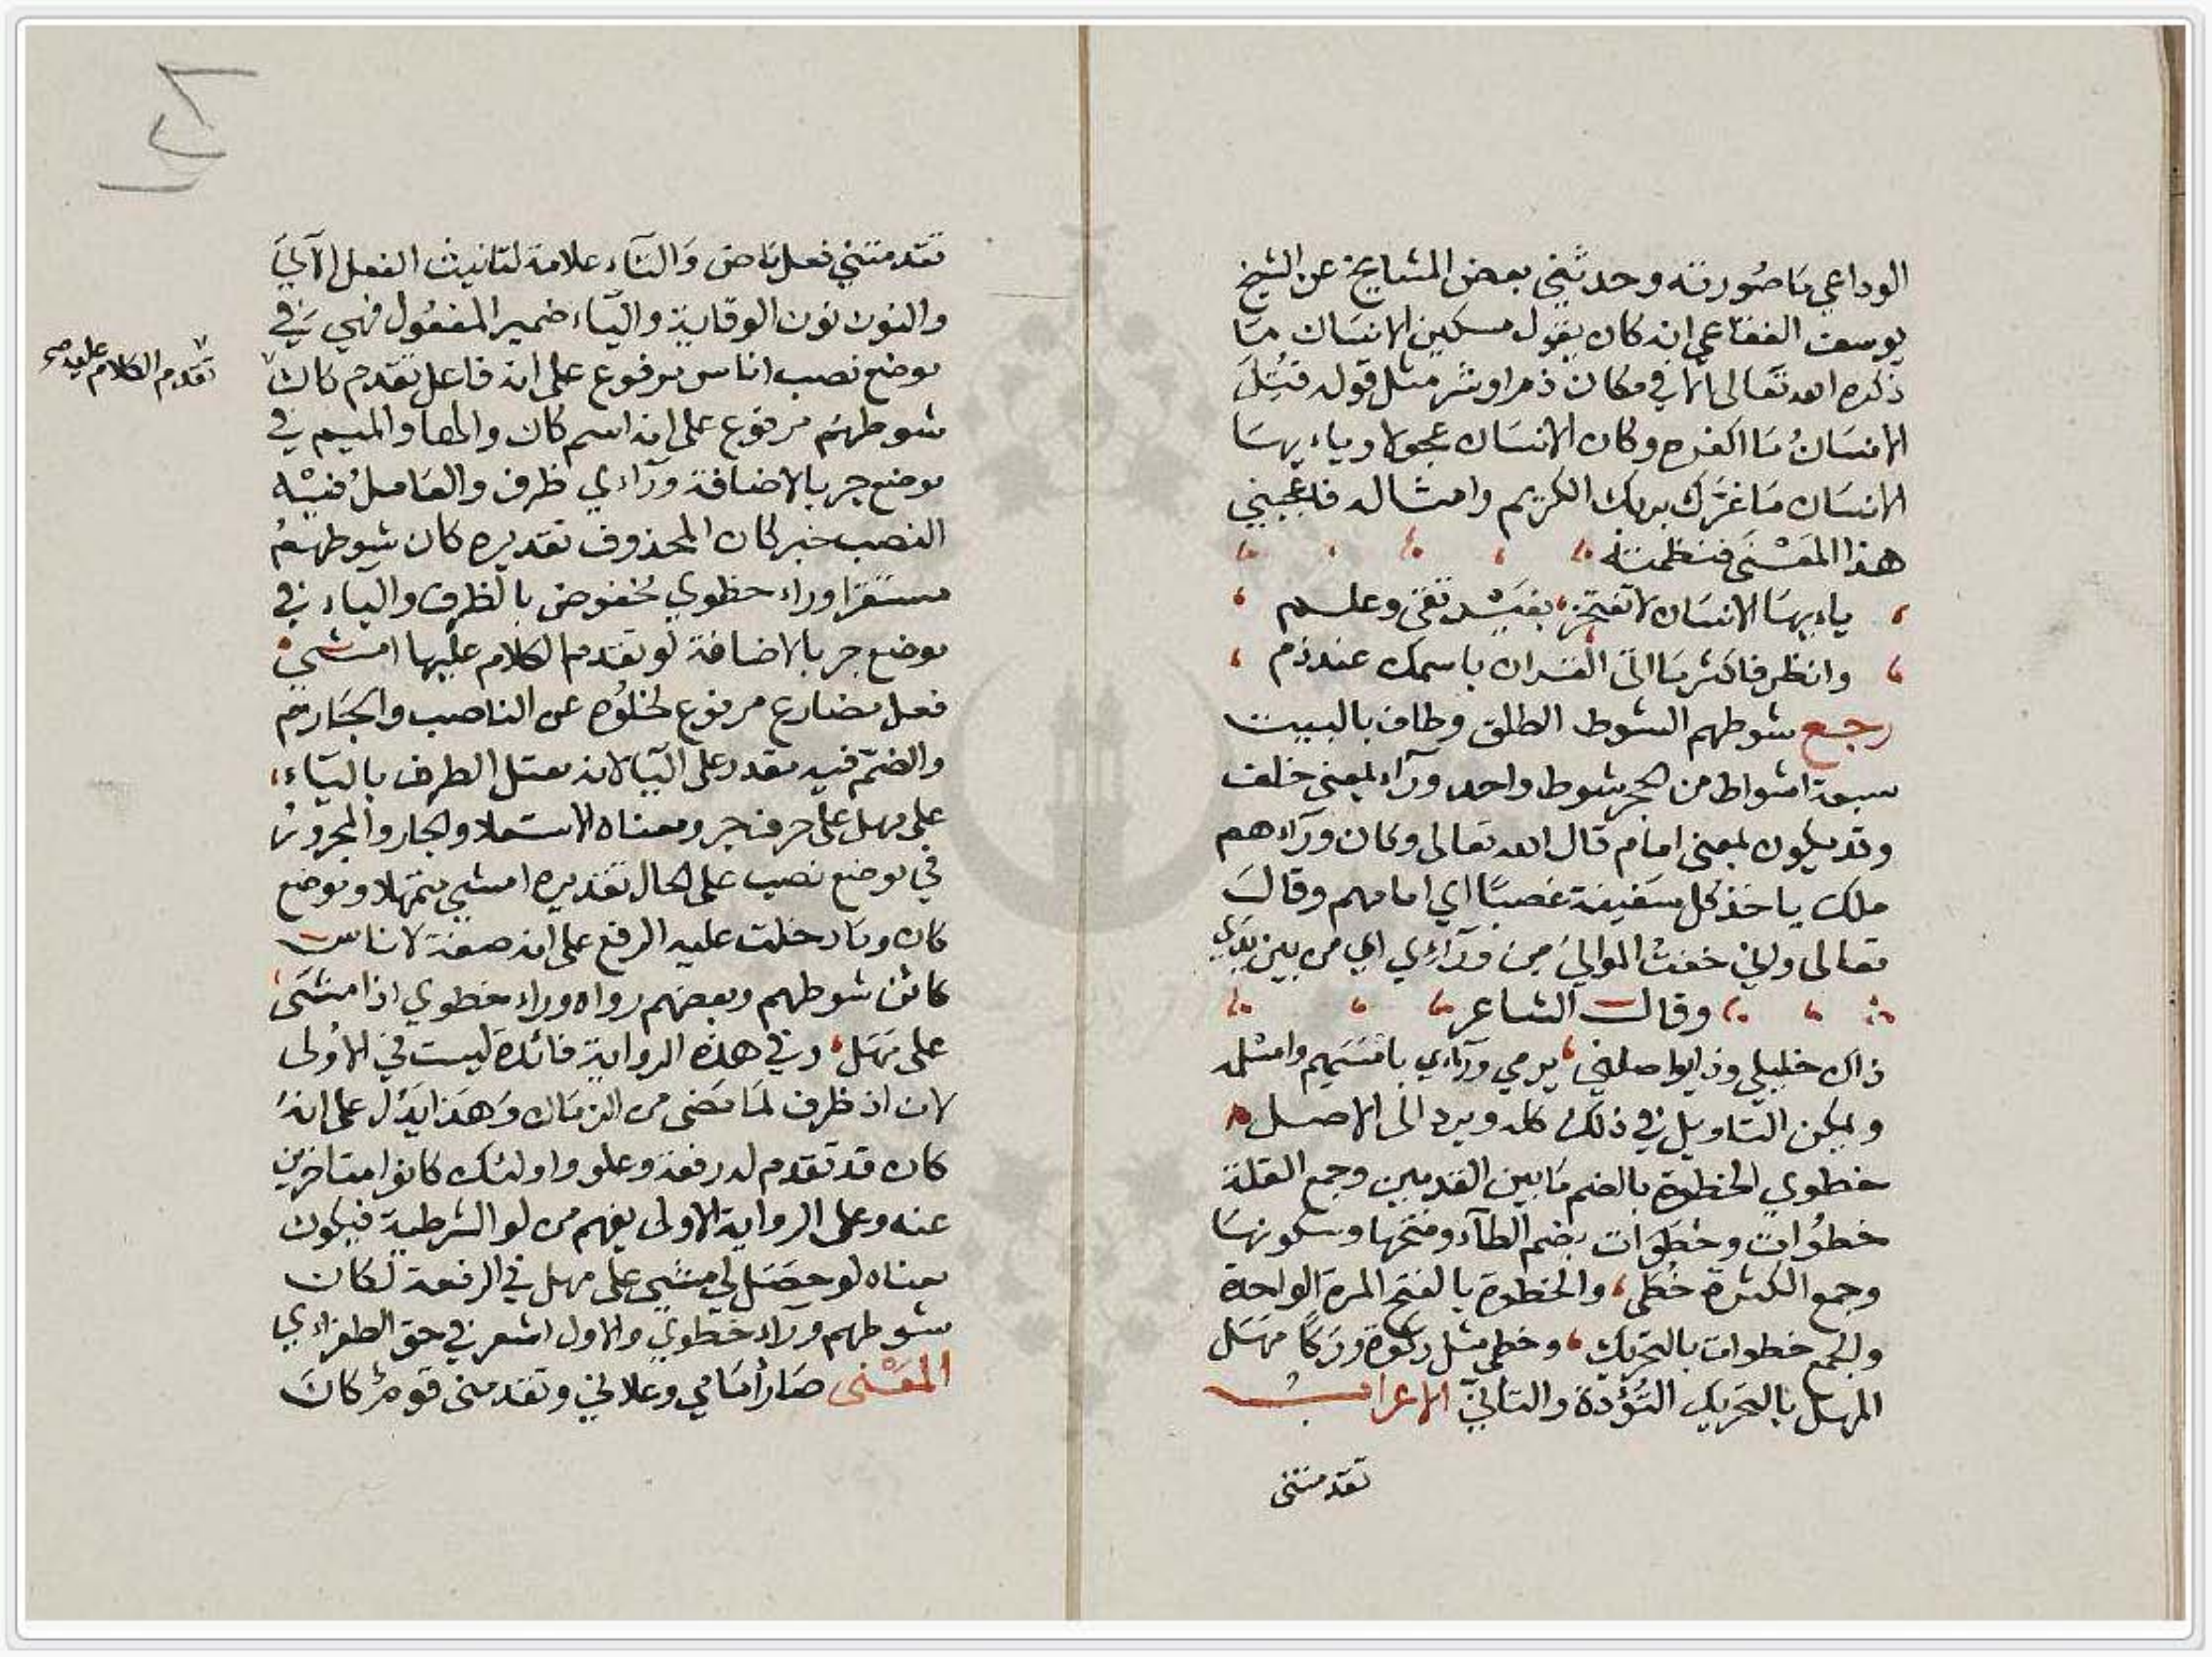 الوداعي مَا صُورته وحدثني بعض المشايخ عن الشيخ
يوسف الفقاعي انه كان يقول مسكين الانسان مَا
ذكره الله تعالى الا في مكان ذم او شر مثل قوله قُتِلَ
الانسَانُ مَا اكفره وكان الانسَان عجولا وياءيهَا
الانسَان مَا غرّك بربك الكريم وامثاله فاعجبني
هذا المعْنَى فنظمته
ياءيهَا الانسَان لا تفتخر، بفَيْد تقى وعلم
وانظر فاكثر مَا اتى القران باسمك عند ذم
رجع شوطهم الشوط الطلق وطاف بالبيت
سبعة اشواط من الحجر شوط واحد ورآء بمعنى خلف
وقد يكون بمعنى امام قال الله تعالى وكان ورآءهم
ملك ياخذ كل سَفينة غصبًا اي امامهم وقال
تعالى واني خفت الموالي من ورآءي اي من بين يدي
وقال الشاعر
ذاك خليلي وذو يواصلني، يرمي ورآءي بامسَهم وامسلمه
ويمكن التاويل في ذلك كله ويرد الى الاصل
خطوي الخطوة بالضم مَا بين القدمين وجمع القلة
خطُوات وخطَوَات بضم الطآء وفتحها وسكونهَا
وجمع الكثرة خُطى، والخطوة بالفتح المرة الواحدة
والجمع خطوات بالتحريك، وخطى مثل ركوة وركا مهَل
المهل بالتحريك التؤدة والتاني الاعراب
تقدمتني
تقدمتني فعل مَاض وَالتآء علامة لتانيث الفعل الآتي
والنون نون الوقاية واليآء ضمير المفعُول فهي في
موضع نصب اناس مرفوع على انه فاعل تقدم كان
تقدم الكلام عليه صح
شوطهم مرفوع على انه اسم كان والها والميم في
موضع جر بالاضافة ورآءي ظرف والعَاملُ فيْه
النصب خبر كان المحذوف تقديره كان شوطهُم
مستقرا وراء خطوي مخفوض بالظرف والياء في
موضع جر بالاضافة لو تقدم الكلام عليها امشي
فعل مضارع مرفوع لخلُوّه عن الناصب والجَازم
والضمّ فيه مقدر على اليَا لانه معتل الطرف باليَاء،
على مهل على حرف جر ومعناه الاستعلا والجار والمجرورُ
في موضع نصب على الحال تقديره امشي متمهلا وموضع
كان ومَا دخلت عليه الرفع على انه صفة لاناس
كائن شوطهم وبعضهم رواه وراء خطوي اذا مشَى
على مهَل، وفي هذه الرواية فائدة ليست في الاولى
لان اذ ظرف لمَا مَضى من الزمَان وَهَذا يَدُل على انهُ
كان قد تقدم له رفعة وعلو واولئك كانوا متاخرين
عنه وعلى الرواية الاولى يفهم من لو الشرطية فيكون
معناه لو حصَل لي مشي على مهل في الرفعة لكان
شوطهم ورآء خطوي والاول اشعر في حق الطغراءي
المعْنى صَار أمَامي وعلاني وتقدمني قوم كانَ